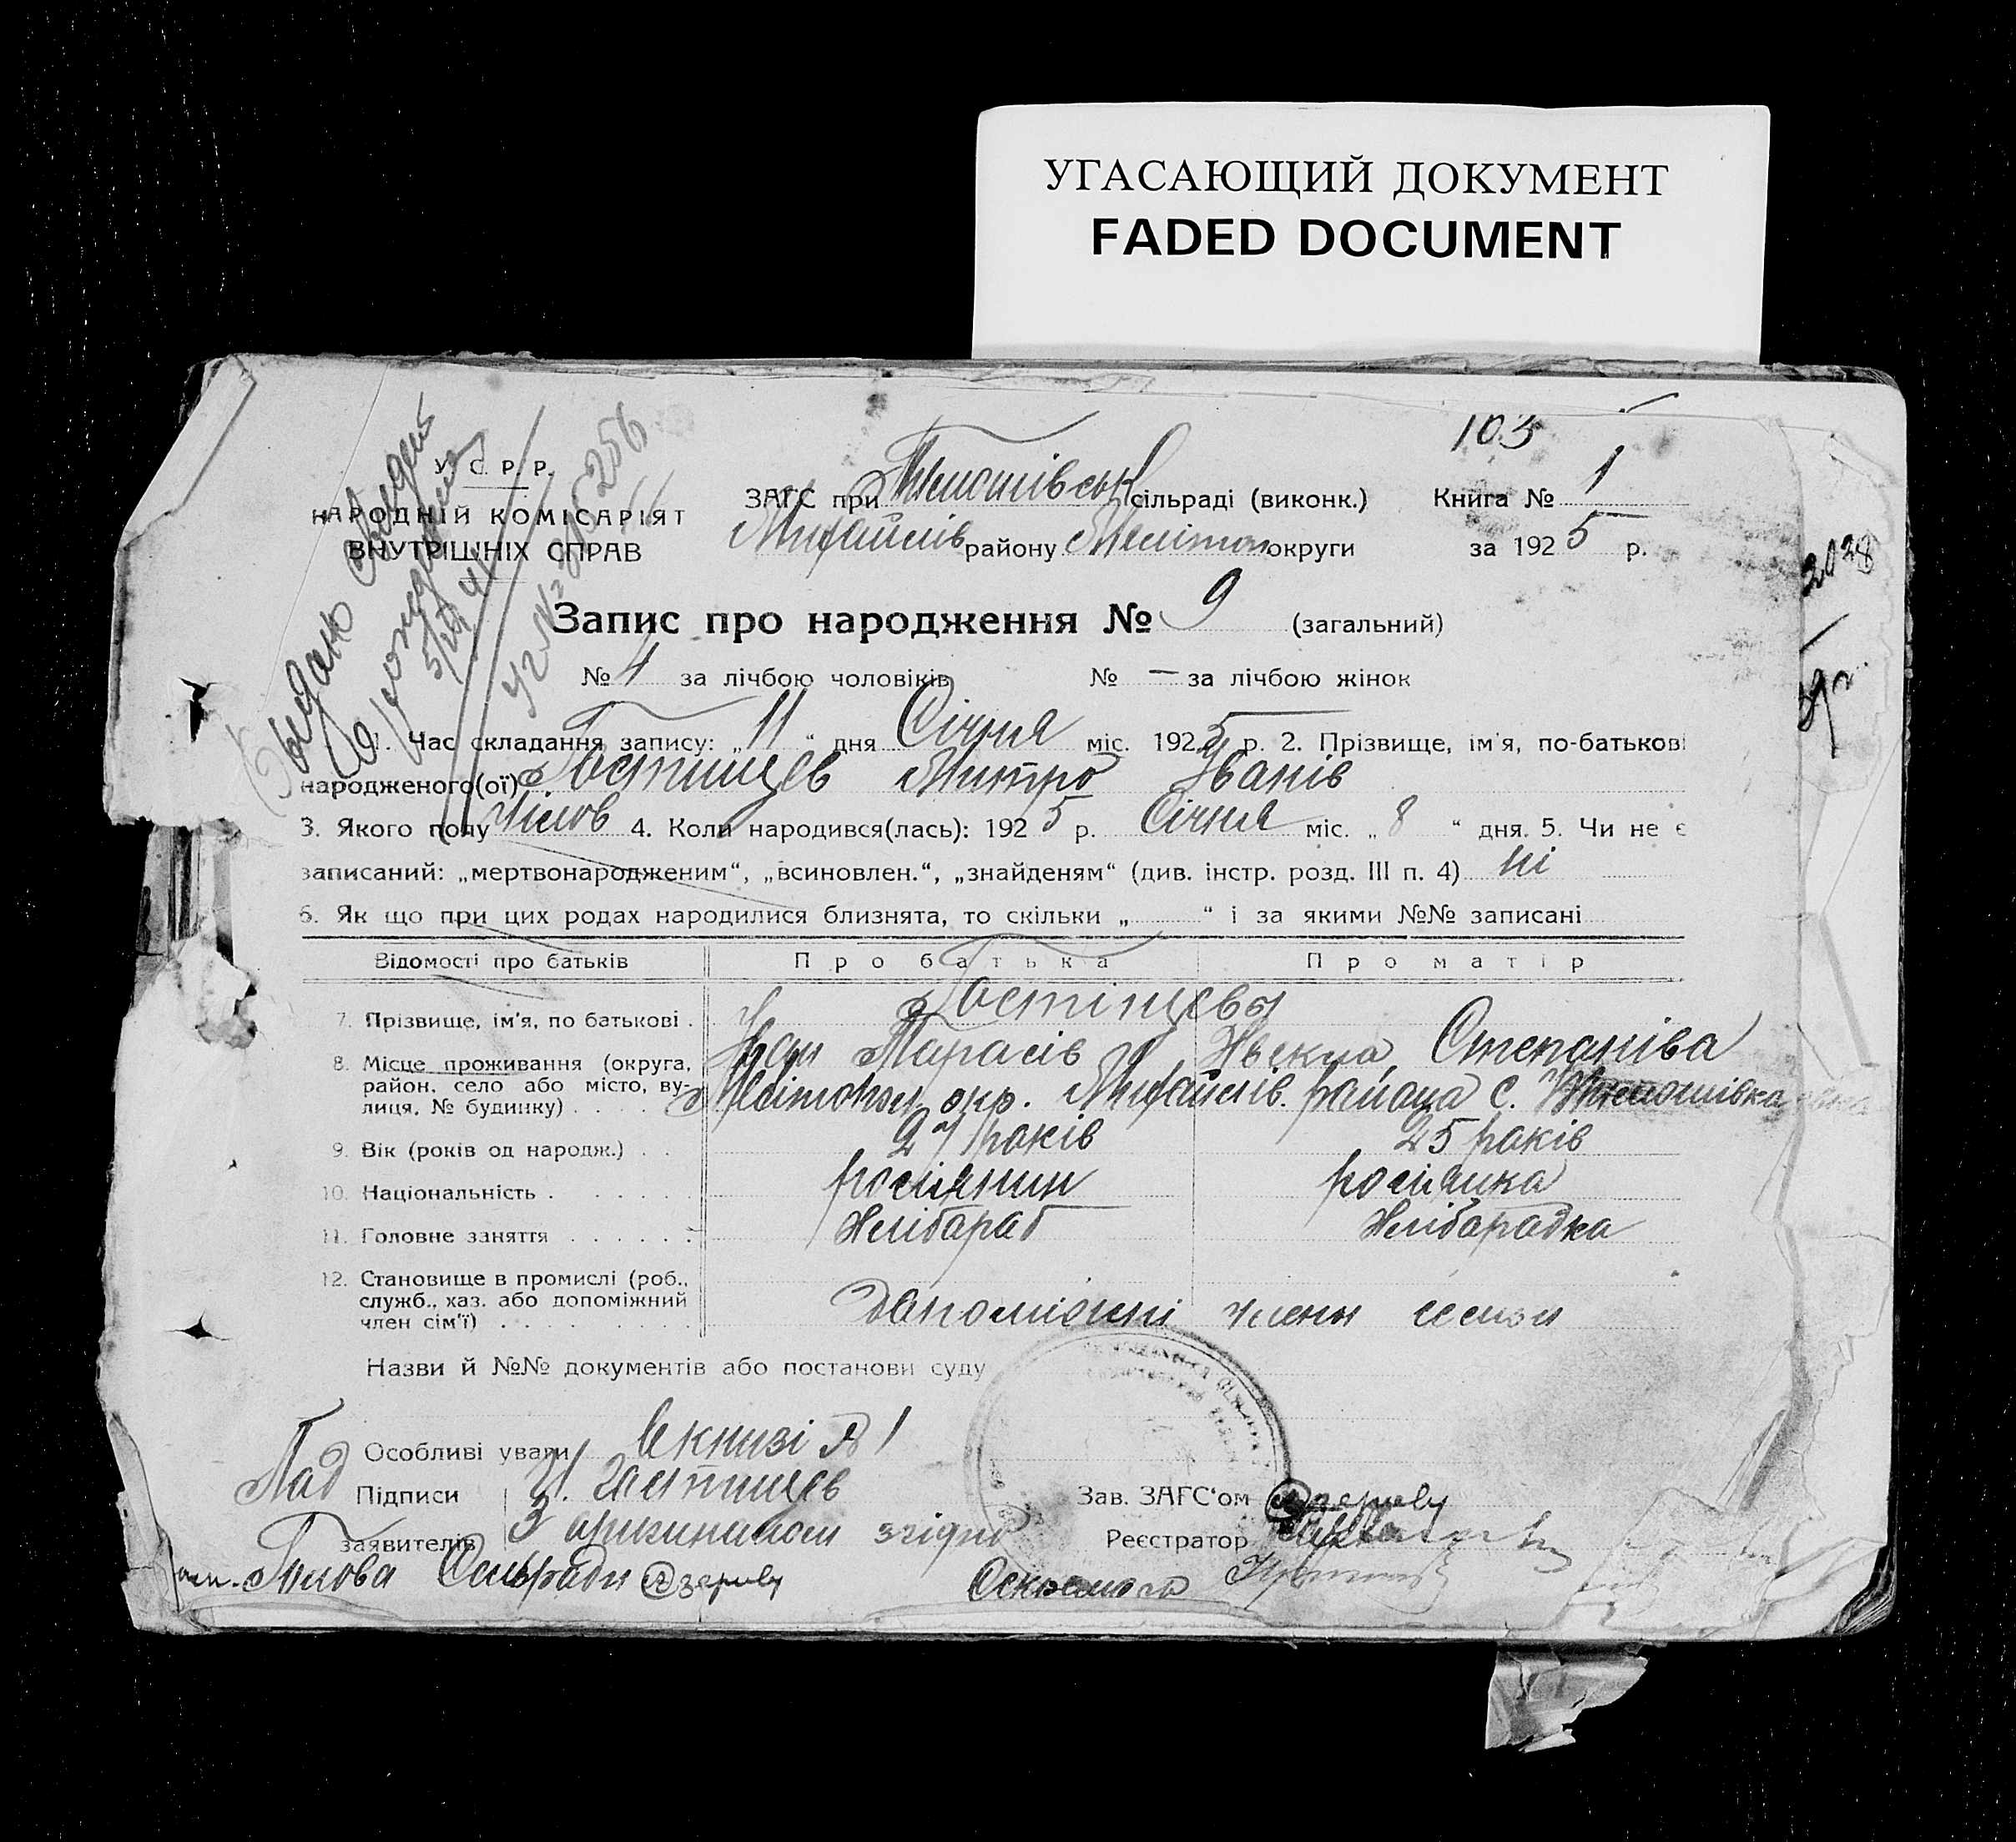 УГАСАЮЩИЙ ДОКУМЕНТ
FADED DOCUMENT
103
У. С. Р. Р.
НАРОДНІЙ КОМІСАРІЯТ
ВНУТРІШНІХ СПРАВ
ЗАГС при Тимошівськ сільраді (виконк.) Книга № 1
Михайлів району Мелітоп округи за 1925 р.
2028
Запис про народження № 9 (загальний)
№ 4 за лічбою чоловіків № — за лічбою жінок
1. Час складання запису: „11" дня Січня міс. 1925 р. 2. Прізвище, ім'я, по-батькові
народженого(ої) Гостищев Митро Іванів
3. Якого полу чілов 4. Коли народився(лась): 1925 р. Січня міс. „8" дня. 5. Чи не є
записаний: „мертвонародженим", „всиновлен.", „знайденям" (див. інстр. розд. III п. 4) ні
6. Як що при цих родах народилися близнята, то скільки „ " і за якими №№ записані
Відомості про батьків Про батька Про матір
7. Прізвище, ім'я, по батькові . Гостіщевы
Іван Тарасів Степаніва
8. Місце проживання (округа, район, село або місто, вулиця, № будинку) . . . . Мелітопол. окр. Михайлів. района с. Тимошівка
9. Вік (років од народж.) . . 27 років 25 років
10. Національність . . . . . росіянин росіянка
11. Головне заняття . . . . . . Хлібараб Хлібарабка
12. Становище в промислі (роб., служб., хаз. або допоміжний член сім'ї) . . . . . . . . . Дапоміжні члени семьи
Назви й №№ документів або постанови суду
Особливі уваги В книзі № 1
Пад Підписи И. Гостищев Зав. ЗАГС'ом
заявителів З оригиналом згідно Реєстратор
Голова Сильради